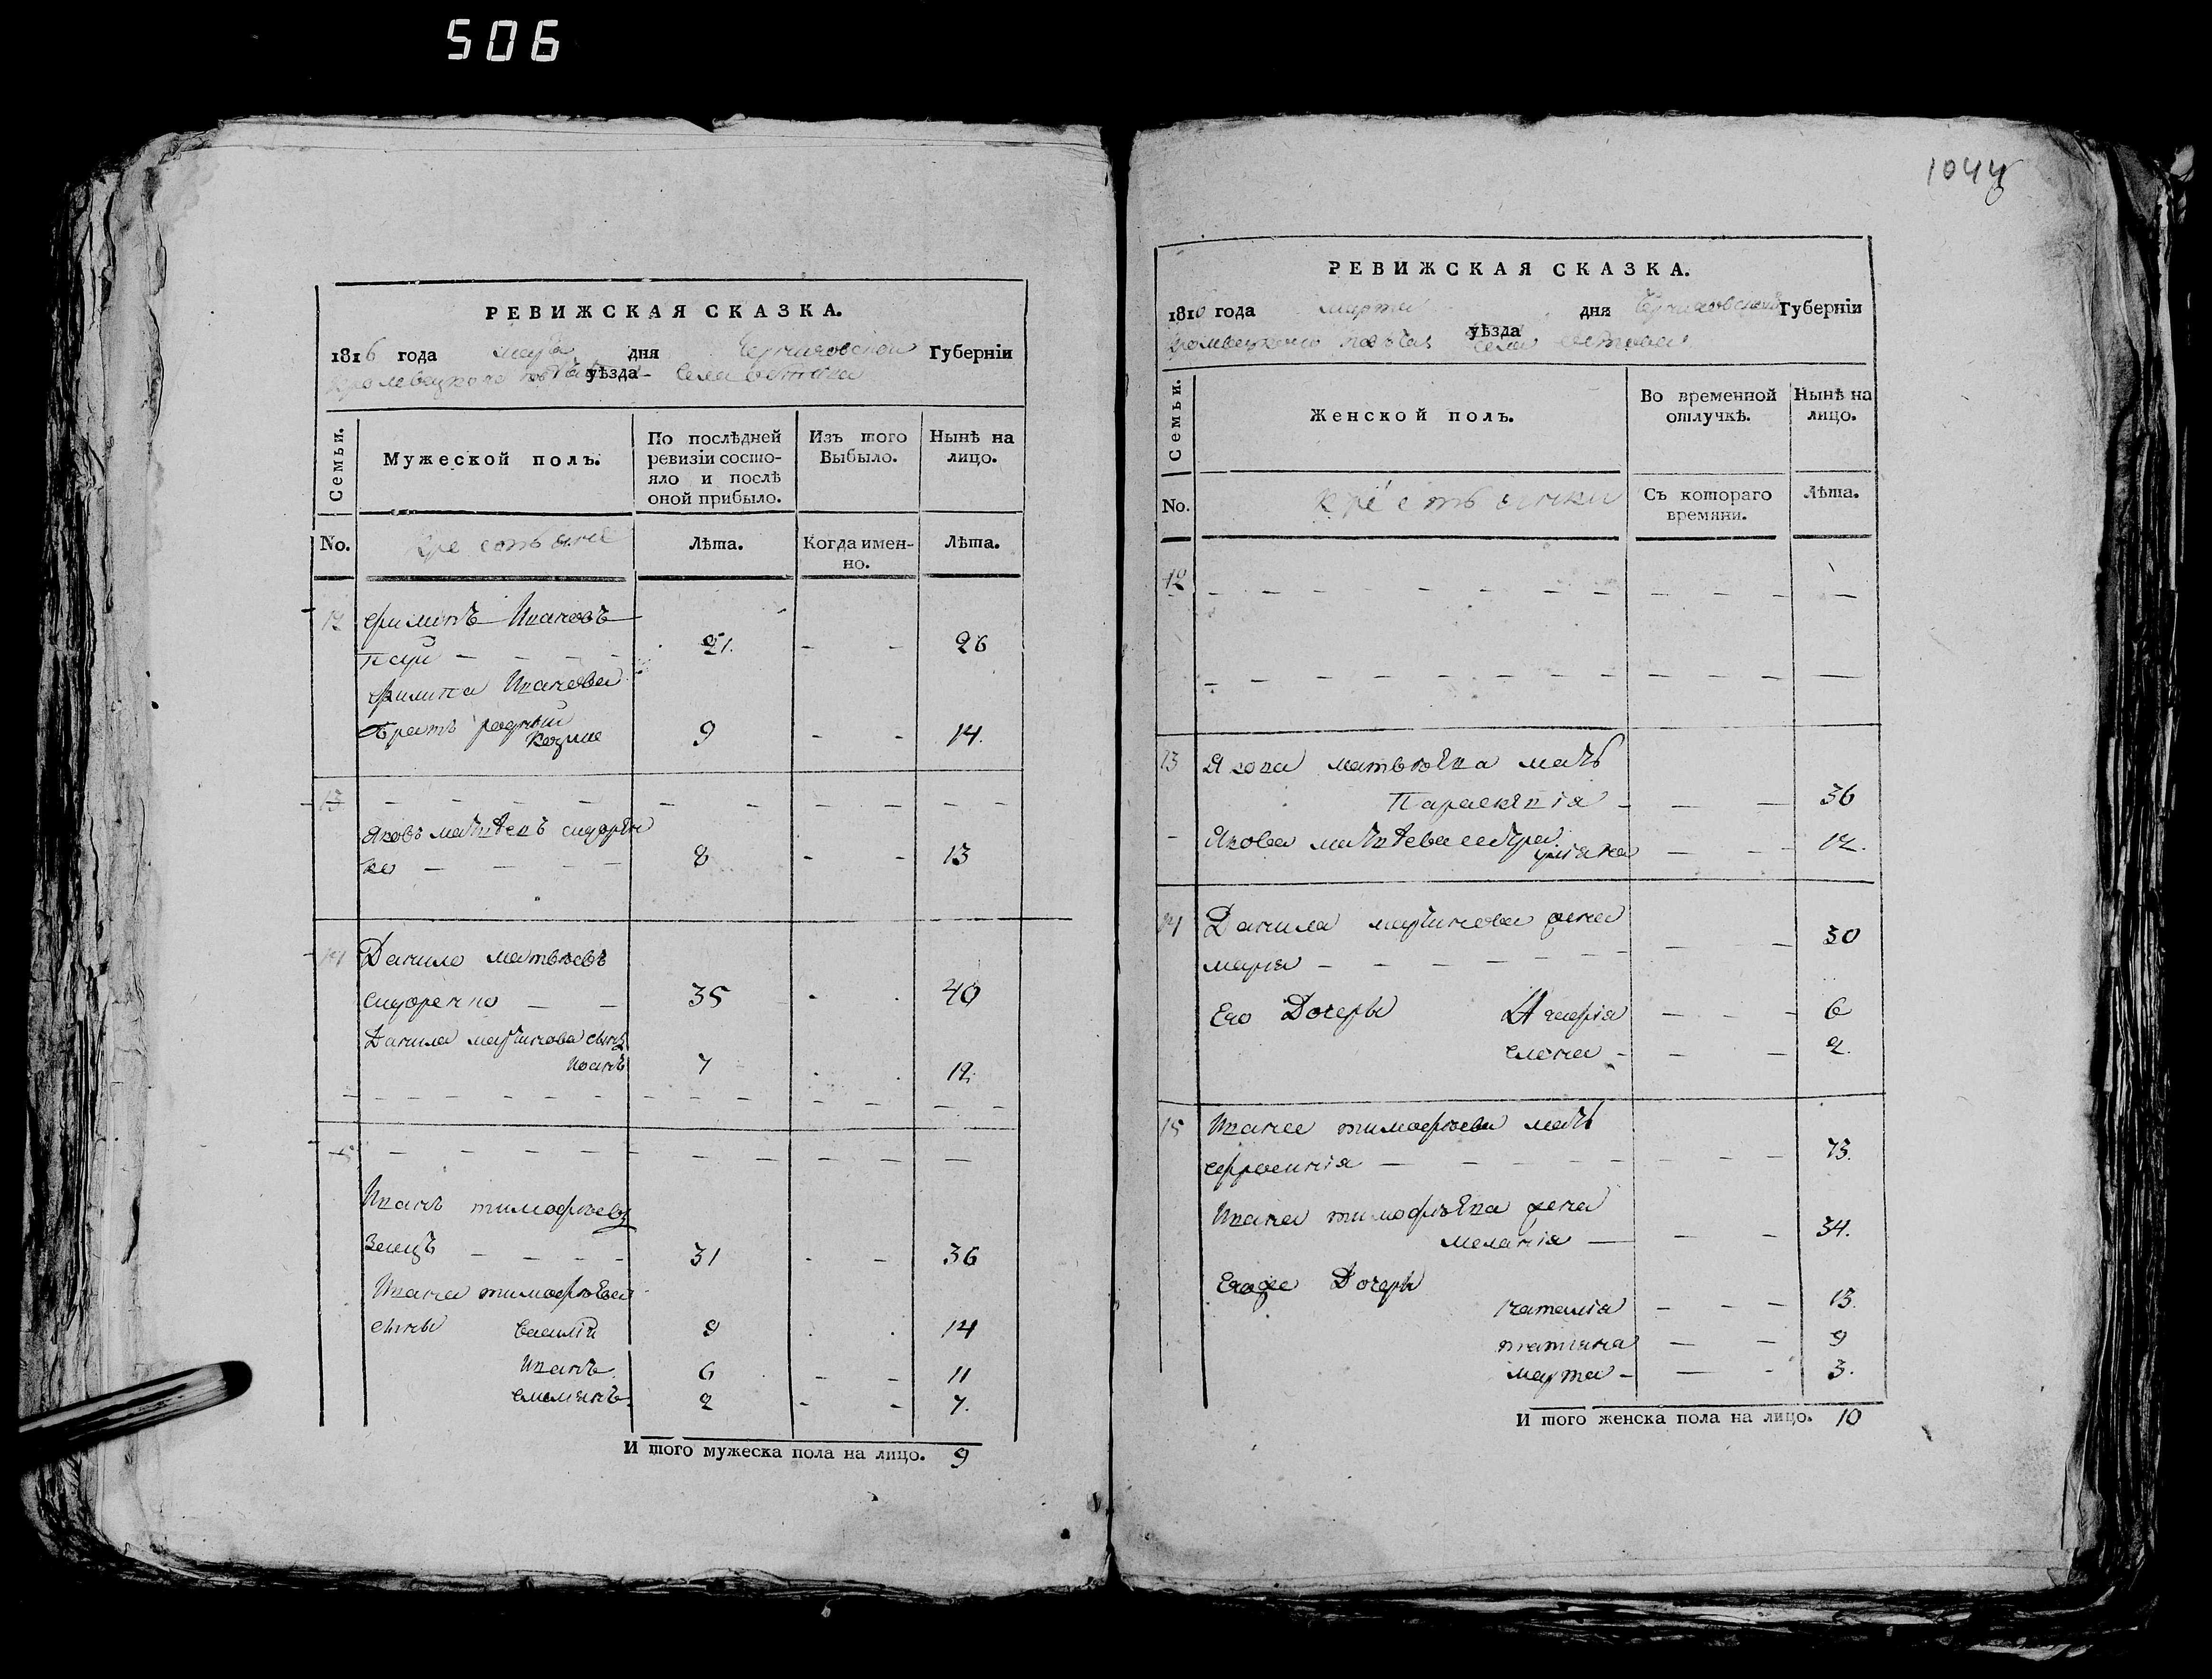 506
РЕВИЖСКАЯ СКАЗКА.
1816 года марта дня Черниговской Губерніи
Кролевецкого повѣта уѣзда села
Семьи.
Мужеской полъ.
По послѣдней ревизіи состояло и послѣ оной прибыло.
Изъ того Выбыло.
Нынѣ на лицо.
No.
Крестьяне
Лѣта.
Когда именно.
Лѣта.
12 Филипъ Ивановъ
21. - - 26
Филипа Иванова
братъ родный Козма 9 - - 14.
13
Яковъ Матвѣевъ Сидорен
ко - 8 - - 13
14 Данило Матвѣевъ
Сидоренко - - 35 40
Данила Мартинова сынъ
Иванъ 7 12.
15
Иванъ Тимофѣевъ
Заецъ - - - 31 - - 36
Ивана Тимофѣева
сыны Василій 9 14
Иванъ 6 - - 11
Емелянъ 2 - - 7.
И того мужеска пола на лицо. 9
1044
РЕВИЖСКАЯ СКАЗКА.
1816 года марта дня Черниговской Губерніи
Кролевецкого повѣта уѣзда села
Семьи.
Женской полъ.
Во временной отлучкѣ.
Нынѣ на лицо.
No.
Крестьянки
Съ котораго времяни.
Лѣта.
12
13 Якова Матвѣева мать
Параскевія - - - 36
Якова Матвѣева сестра
Уліяна - - - 12.
14 Данила Мартинова жена
30
Марія
Его Дочеры 6
Елена - - - 2.
15 Ивана Тимофѣева мать
Ефросинія - 73.
Ивана Тимофѣева жена
Меланія - - - 34.
Егоже Дочеры
Наталія - - - 13.
Татіяна - - 9
Марта - - - 3.
И того женска пола на лицо. 10